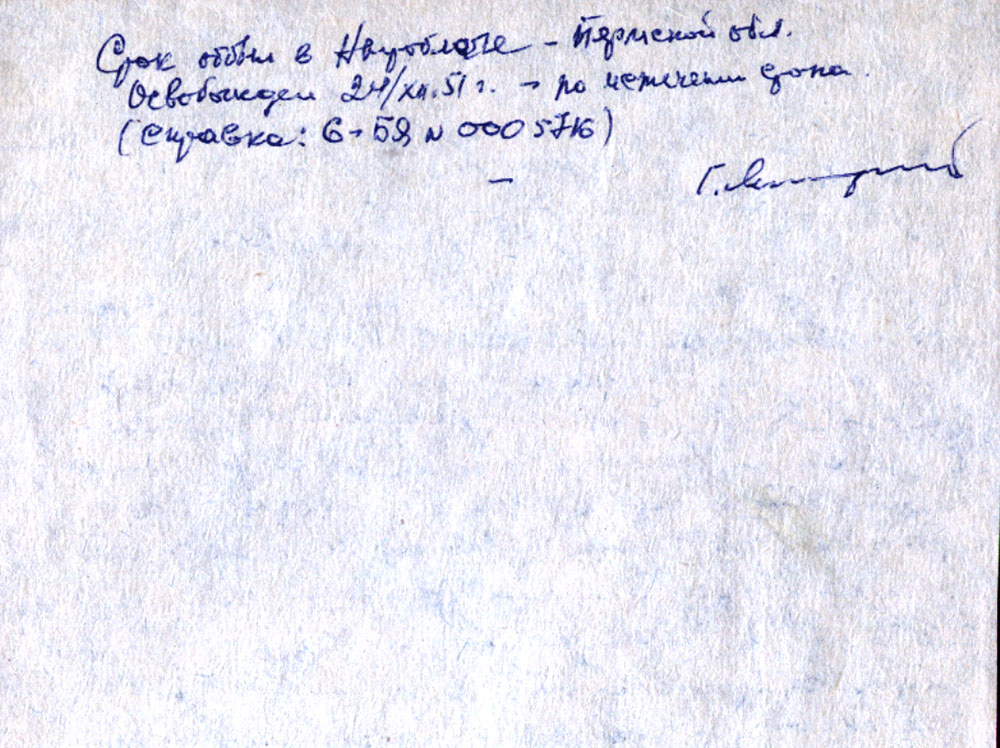 Срок отбыл в Ныроблаге – Пермской обл.
Освобожден 24/XII.51 г. → по истечении срока.
(Справка: 6-БЯ N 0005716)
–
Г.